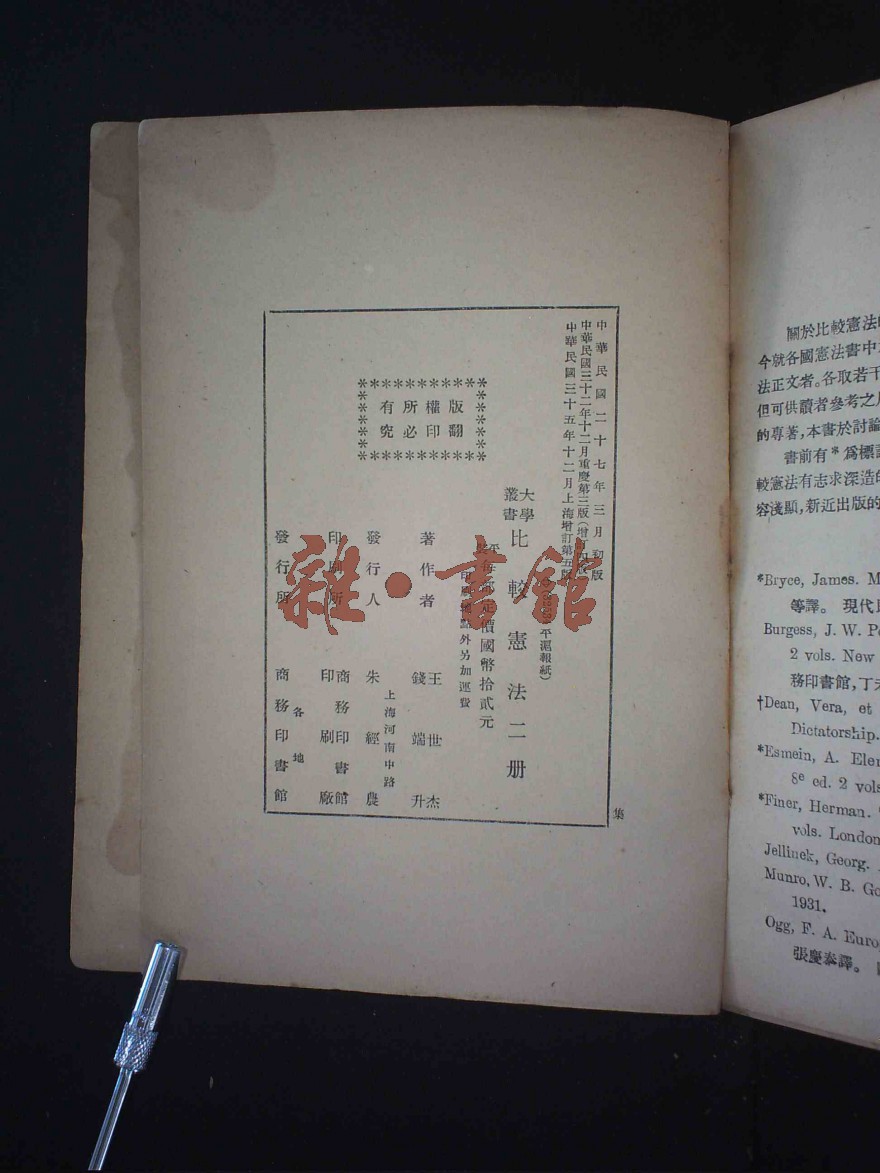 中華民國二十七年三月初版
中華民國三十二年十二月重慶第三版(增訂四版
中華民國三十五年十二月上海增訂第五版
平滬報紙)
大學
叢書
比較憲法二册
每部定價國幣拾貳元
印刷地點外另加運費
版權所有
翻印必究
著作者
王世杰
錢端升
發行人
朱經農
上海河南中路
印刷所
商務印書館
印刷廠
發行所
各地
商務印書館
集
雜·書館
關於比較憲法
今就各國憲法書中
法正文者。各取若干
但可供讀者參考之
的專著,本書於討論
書前有*爲標
較憲法有志求深造的
容淺顯,新近出版的
*Bryce, James. M
等譯。 現代
Burgess, J. W. Po
2 vols. New
務印書館,丁
†Dean, Vera, et
Dictatorship.
*Esmein, A. Elem
8e ed. 2 vols
*Finer, Herman.
vols. London
Jellinek, Georg.
Munro, W. B. Go
1931.
Ogg, F. A. Euro
張慶泰譯。